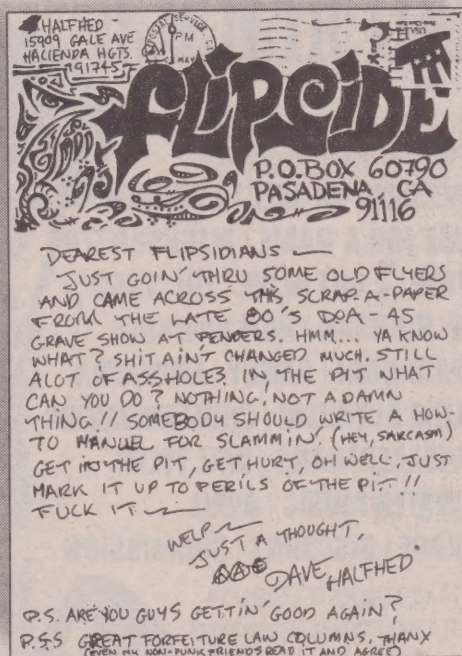 HALFHED
15909 GALE AVE
HACIENDA HGTS.
91745
FLIPCIDE
P.O.BOX 60790
PASADENA, CA
91116
DEAREST FLIPSIDIANS —
JUST GOIN' THRU SOME OLD FLYERS
AND CAME ACROSS THIS SCRAP-A-PAPER
FROM THE LATE 80'S DOA - 45
GRAVE SHOW AT FENDERS. HMM... YA KNOW
WHAT? SHIT AIN'T CHANGED MUCH. STILL
ALOT OF ASSHOLES IN THE PIT WHAT
CAN YOU DO? NOTHING, NOT A DAMN
THING!! SOMEBODY SHOULD WRITE A HOW-
TO MANUEL FOR SLAMMIN'. (HEY, SARCASM)
GET IN THE PIT, GET HURT, OH WELL, JUST
MARK IT UP TO PERILS OF THE PIT!!
FUCK IT —
WELP —
JUST A THOUGHT,
DAVE HALFHED
P.S. ARE YOU GUYS GETTIN' GOOD AGAIN?
P.S.S GREAT FORFEITURE LAW COLUMNS, THANX
(EVEN MY NON-PUNK FRIENDS READ IT AND AGREE)